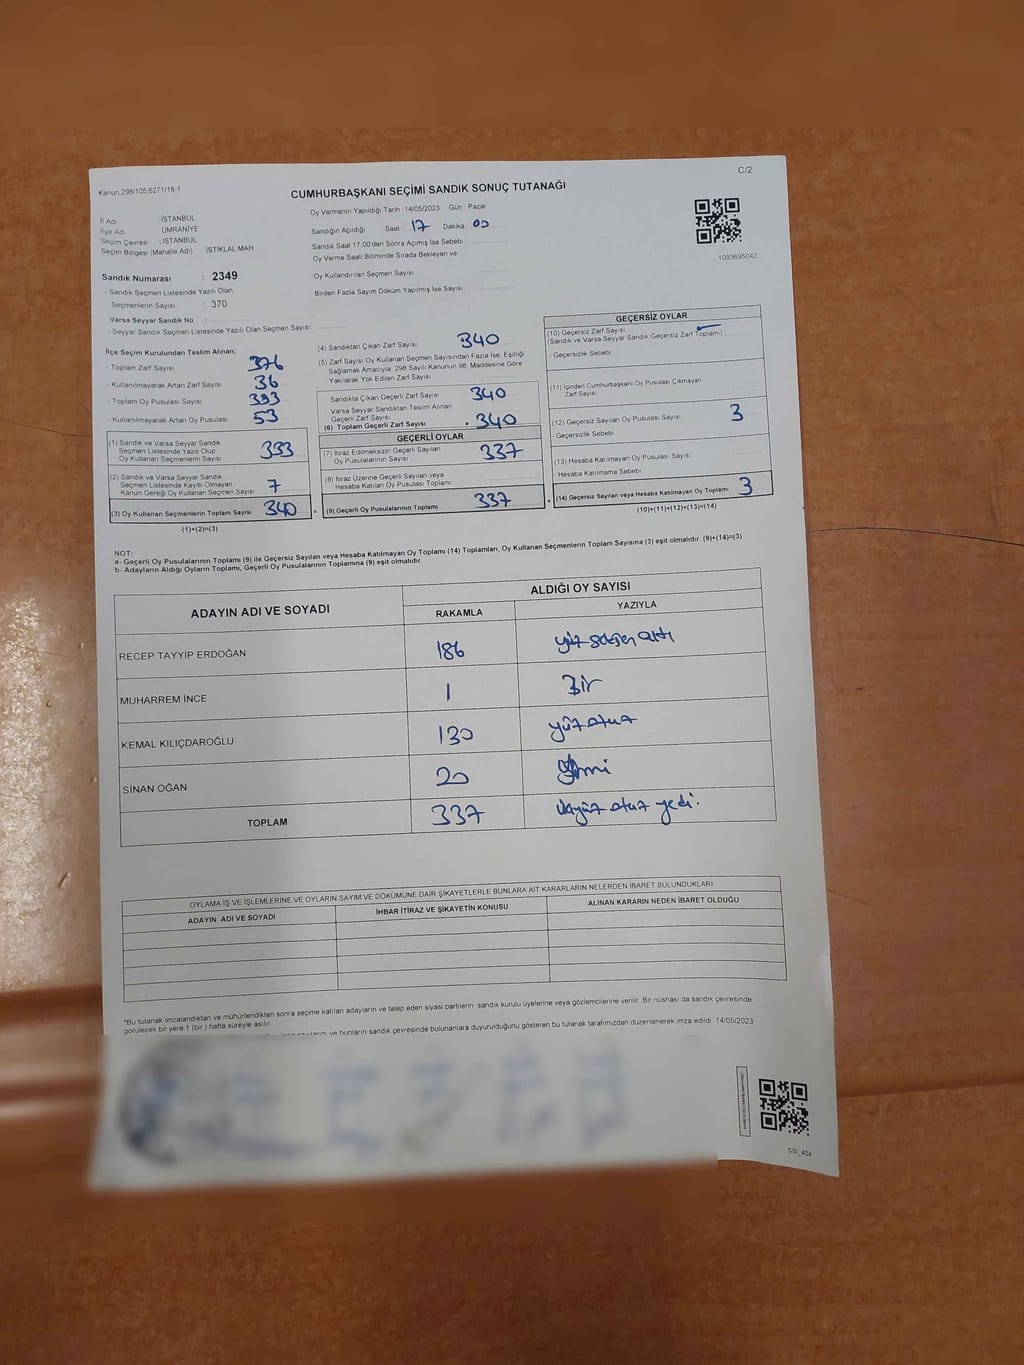 C/2
Kanun:298/105;6271/18-1
CUMHURBAŞKANI SEÇİMİ SANDIK SONUÇ TUTANAĞI
İl Adı : İSTANBUL
İlçe Adı : ÜMRANİYE
Seçim Çevresi : İSTANBUL
Seçim Bölgesi (Mahalle Adı) : İSTİKLAL MAH.
Oy Vermenin Yapıldığı Tarih : 14/05/2023 Gün : Pazar
Sandığın Açıldığı Saat 17 Dakika 00
Sandık Saat 17:00'den Sonra Açılmış İse Sebebi
Oy Verme Saati Bitiminde Sırada Bekleyen ve
Oy Kullandırılan Seçmen Sayısı
Birden Fazla Sayım Döküm Yapılmış İse Sayısı
1093695042
Sandık Numarası : 2349
- Sandık Seçmen Listesinde Yazılı Olan
Seçmenlerin Sayısı : 370
Varsa Seyyar Sandık No :
- Seyyar Sandık Seçmen Listesinde Yazılı Olan Seçmen Sayısı:
İlçe Seçim Kurulundan Teslim Alınan;
- Toplam Zarf Sayısı 376
- Kullanılmayarak Artan Zarf Sayısı 36
- Toplam Oy Pusulası Sayısı 393
- Kullanılmayarak Artan Oy Pusulası 53
(1) Sandık ve Varsa Seyyar Sandık
Seçmen Listesinde Yazılı Olup
Oy Kullanan Seçmenlerin Sayısı 333
(2) Sandık ve Varsa Seyyar Sandık
Seçmen Listesinde Kayıtlı Olmayan
Kanun Gereği Oy Kullanan Seçmen Sayısı 7
(3) Oy Kullanan Seçmenlerin Toplam Sayısı 340
(1)+(2)=(3)
(4) Sandıktan Çıkan Zarf Sayısı 340
(5) Zarf Sayısı Oy Kullanan Seçmen Sayısından Fazla İse, Eşitliği
Sağlamak Amacıyla; 298 Sayılı Kanunun 98. Maddesine Göre
Yakılarak Yok Edilen Zarf Sayısı
Sandıkta Çıkan Geçerli Zarf Sayısı 340
Varsa Seyyar Sandıktan Teslim Alınan
Geçerli Zarf Sayısı
(6) Toplam Geçerli Zarf Sayısı 340
GEÇERLİ OYLAR
(7) İtiraz Edilmeksizin Geçerli Sayılan
Oy Pusulalarının Sayısı 337
(8) İtiraz Üzerine Geçerli Sayılan veya
Hesaba Katılan Oy Pusulası Toplamı
= (9) Geçerli Oy Pusulalarının Toplamı 337
GEÇERSİZ OYLAR
(10) Geçersiz Zarf Sayısı
(Sandık ve Varsa Seyyar Sandık Geçersiz Zarf Toplamı)
- Geçersizlik Sebebi
(11) İçinden Cumhurbaşkanı Oy Pusulası Çıkmayan
Zarf Sayısı
(12) Geçersiz Sayılan Oy Pusulası Sayısı 3
- Geçersizlik Sebebi
(13) Hesaba Katılmayan Oy Pusulası Sayısı
- Hesaba Katılmama Sebebi
+ (14) Geçersiz Sayılan veya Hesaba Katılmayan Oy Toplamı 3
(10)+(11)+(12)+(13)=(14)
NOT:
a- Geçerli Oy Pusulalarının Toplamı (9) ile Geçersiz Sayılan veya Hesaba Katılmayan Oy Toplamı (14) Toplamları, Oy Kullanan Seçmenlerin Toplam Sayısına (3) eşit olmalıdır. (9)+(14)=(3)
b- Adayların Aldığı Oyların Toplamı, Geçerli Oy Pusulalarının Toplamına (9) eşit olmalıdır.
ADAYIN ADI VE SOYADI
ALDIĞI OY SAYISI
RAKAMLA YAZIYLA
RECEP TAYYİP ERDOĞAN 186 yüz seksen altı
MUHARREM İNCE 1 Bir
KEMAL KILIÇDAROĞLU 130 yüz otuz
SİNAN OĞAN 20 yirmi
TOPLAM 337 üçyüz otuz yedi.
OYLAMA İŞ VE İŞLEMLERİNE VE OYLARIN SAYIM VE DÖKÜMÜNE DAİR ŞİKAYETLERLE BUNLARA AİT KARARLARIN NELERDEN İBARET BULUNDUKLARI
ADAYIN ADI VE SOYADI İHBAR İTİRAZ VE ŞİKAYETİN KONUSU ALINAN KARARIN NEDEN İBARET OLDUĞU
*Bu tutanak imzalandıktan ve mühürlendikten sonra seçime katılan adayların ve talep eden siyasi partilerin sandık kurulu üyelerine veya gözlemcilerine verilir. Bir nüshası da sandık çevresinde
görülecek bir yere 1 (bir) hafta süreyle asılır.
ve bunların sandık çevresinde bulunanlara duyurulduğunu gösteren bu tutanak tarafımızdan düzenlenerek imza edildi. 14/05/2023